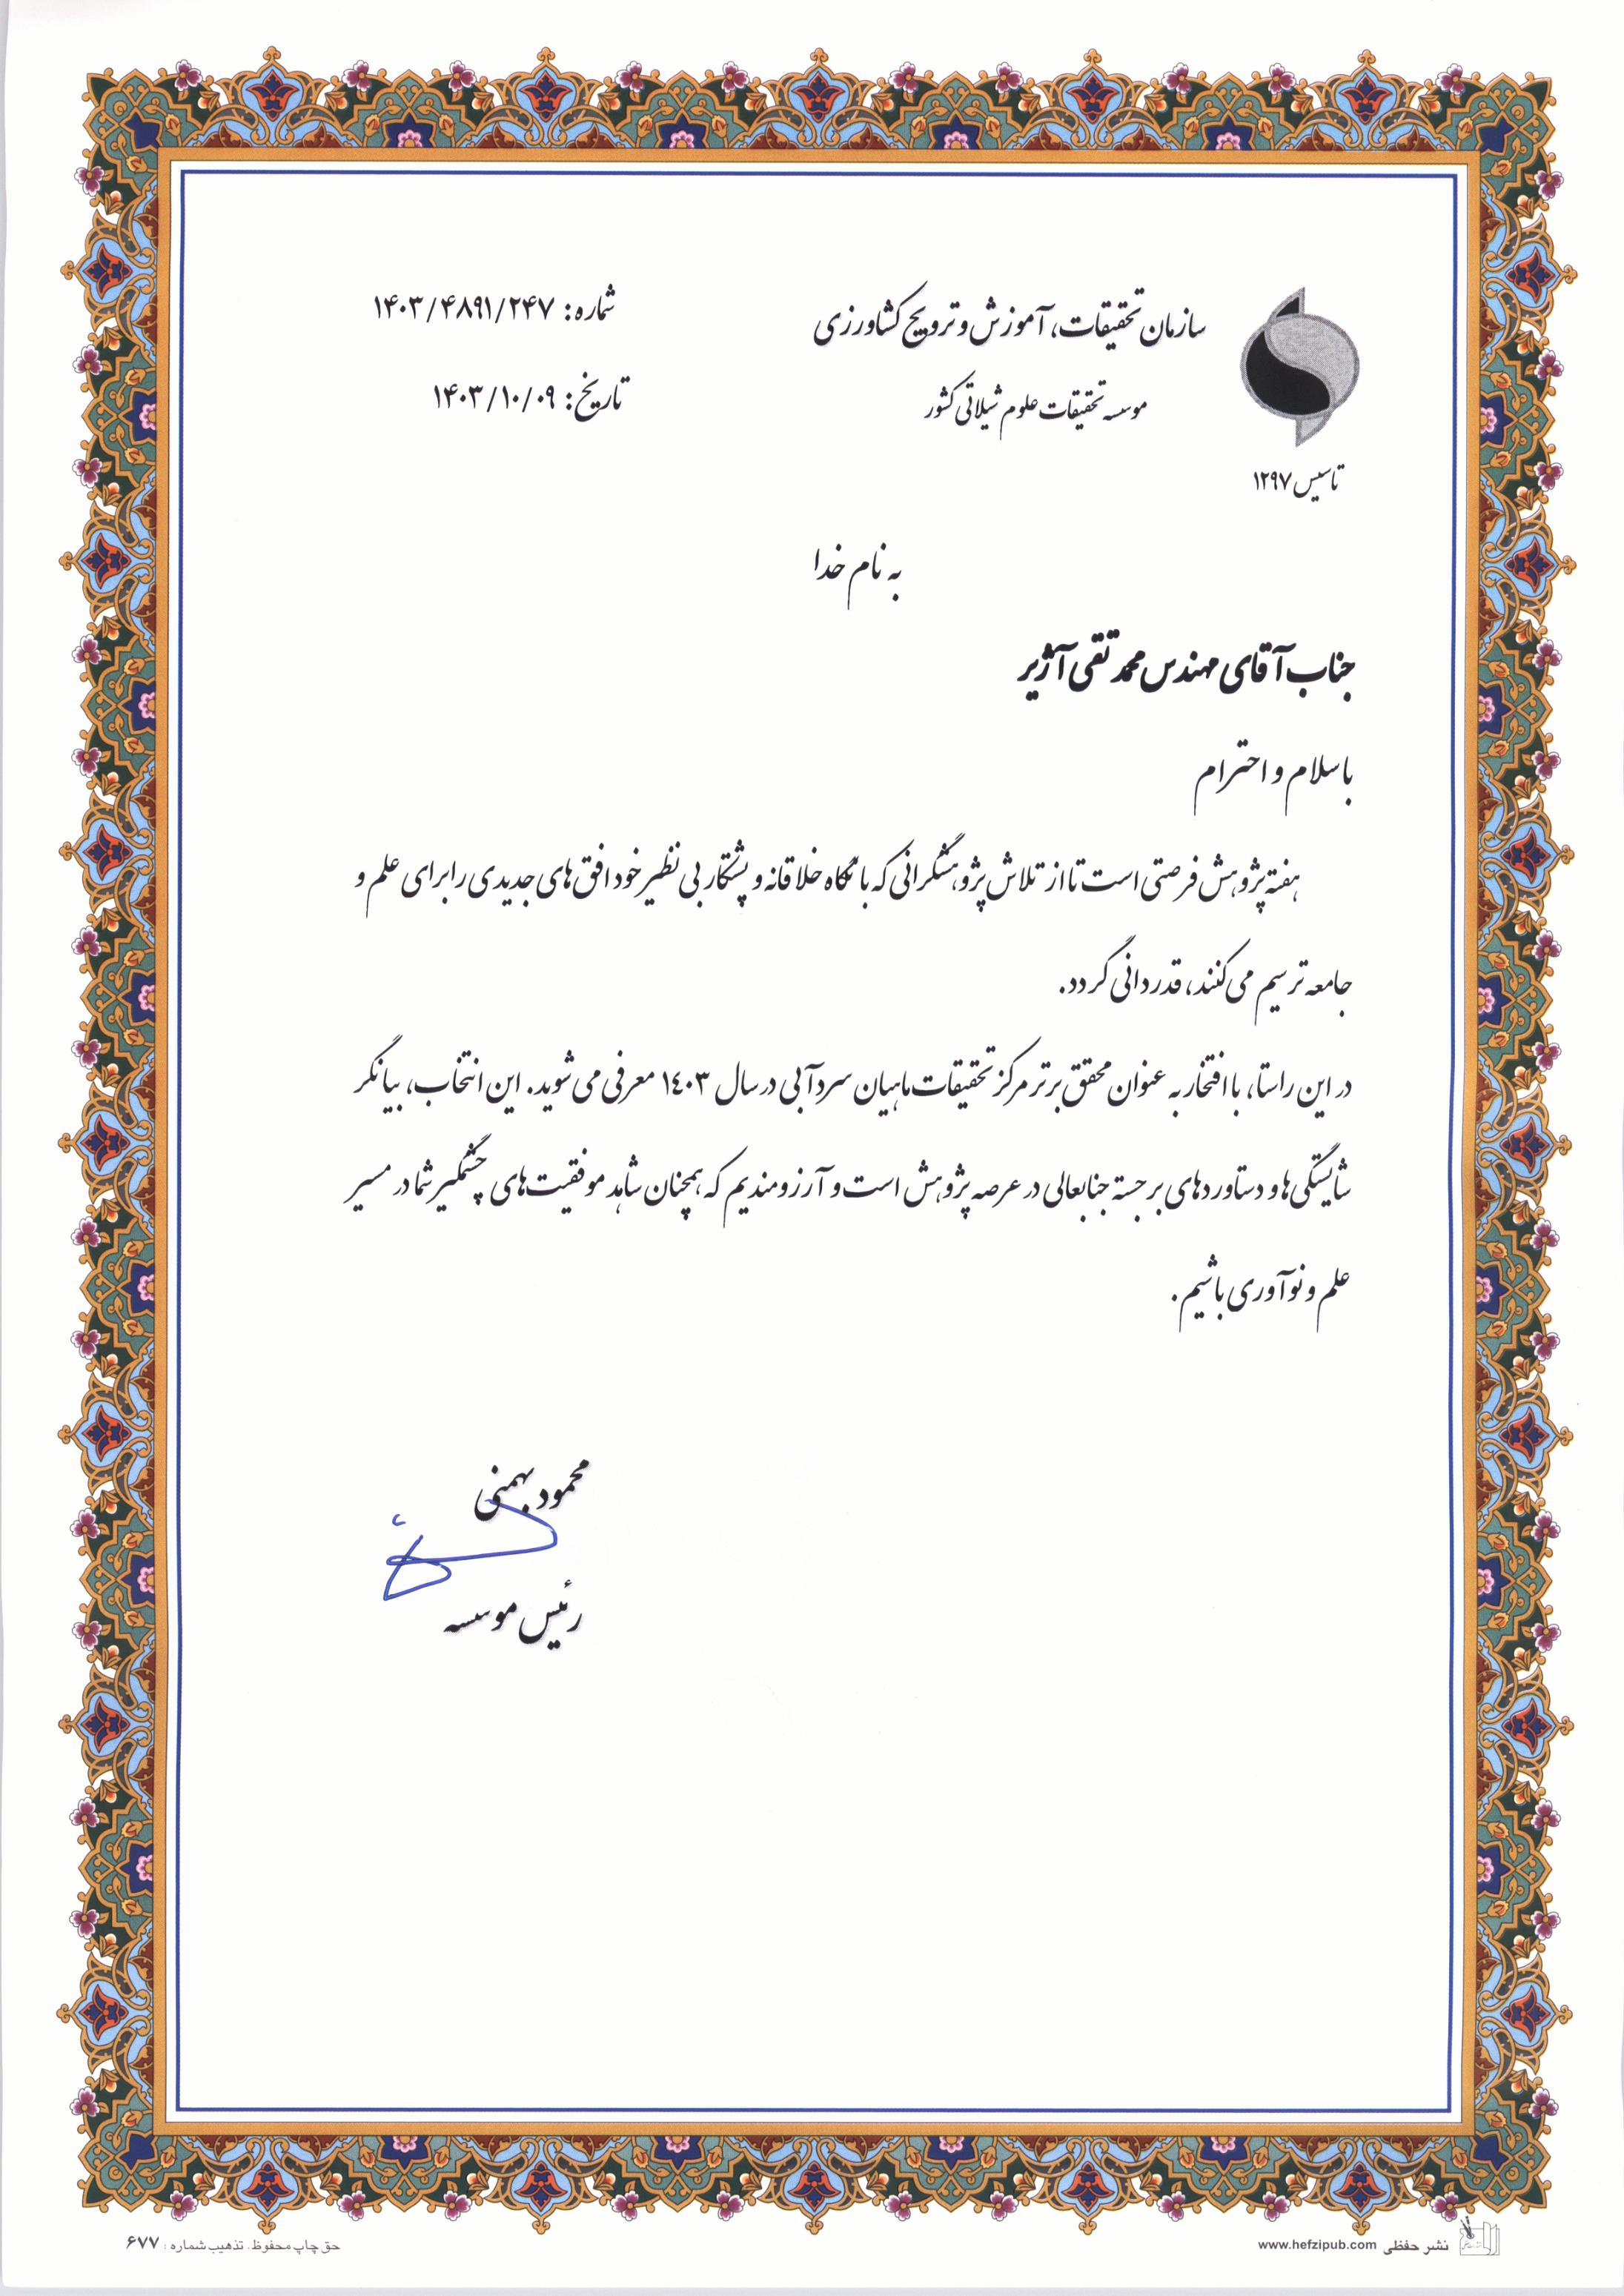 سازمان تحقیقات، آموزش و ترویج کشاورزی
موسسه تحقیقات علوم شیلاتی کشور
تاسیس ۱۲۹۷
شماره: ۱۴۰۳/۴۸۹۱/۲۴۷
تاریخ: ۱۴۰۳/۱۰/۰۹
به نام خدا
جناب آقای مهندس محمد تقی آژیر
با سلام و احترام
هفته پژوهش فرصتی است تا از تلاش پژوهشگرانی که با نگاه خلاقانه و پشتکار بی نظیر خود افق های جدیدی را برای علم و
جامعه ترسیم می‌کنند، قدردانی گردد.
در این راستا، با افتخار به عنوان محقق برتر مرکز تحقیقات ماهیان سردآبی در سال ۱۴۰۳ معرفی می شوید. این انتخاب، بیانگر
شایستگی ها و دستاوردهای برجسته جنابعالی در عرصه پژوهش است و آرزومندیم که همچنان شاهد موفقیت های چشمگیر شما در مسیر
علم و نوآوری باشیم.
محمود بهمنی
رئیس موسسه
نشر حفظی www.hefzipub.com
حق چاپ محفوظ. تذهیب شماره : ۶۷۷